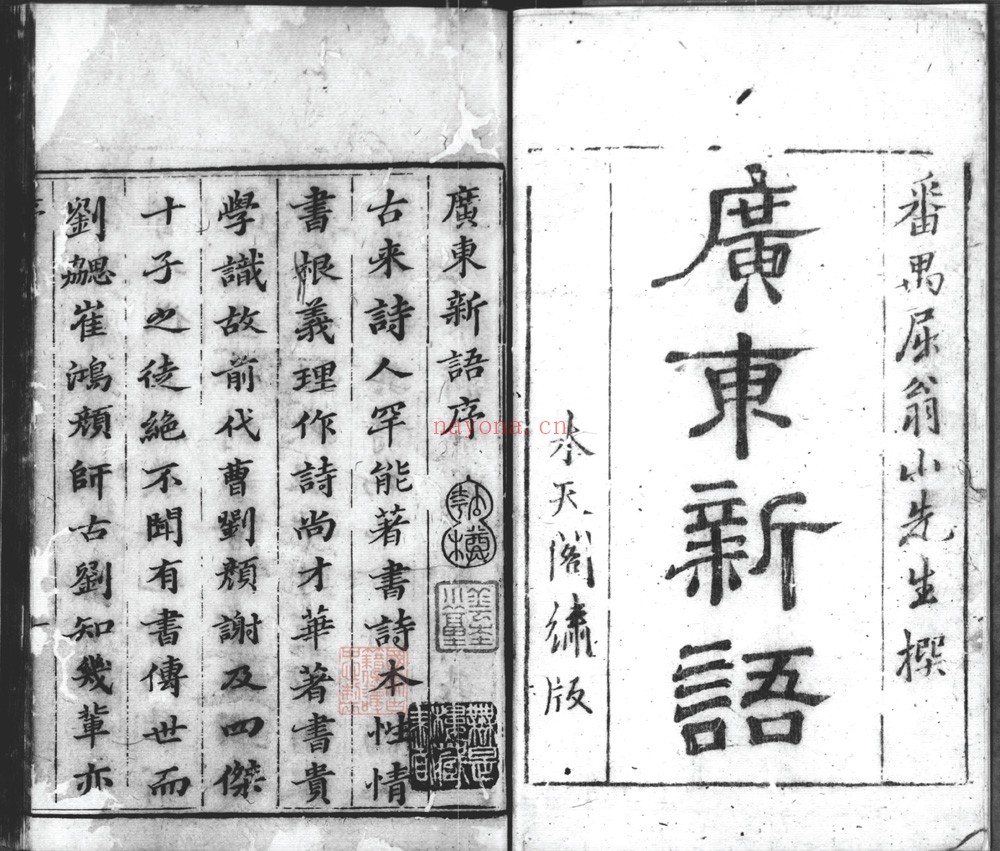 番禺屈翁山先生撰
廣東新語
水天閣繡版
廣東新語序
古来詩人罕能著書詩本性情
書根義理作詩尚才華著書貴
學識故前代曹劉顏謝及四傑
十子之徒絶不聞有書傳世而
劉勰崔鴻顏師古劉知幾軰亦
nayona.cn